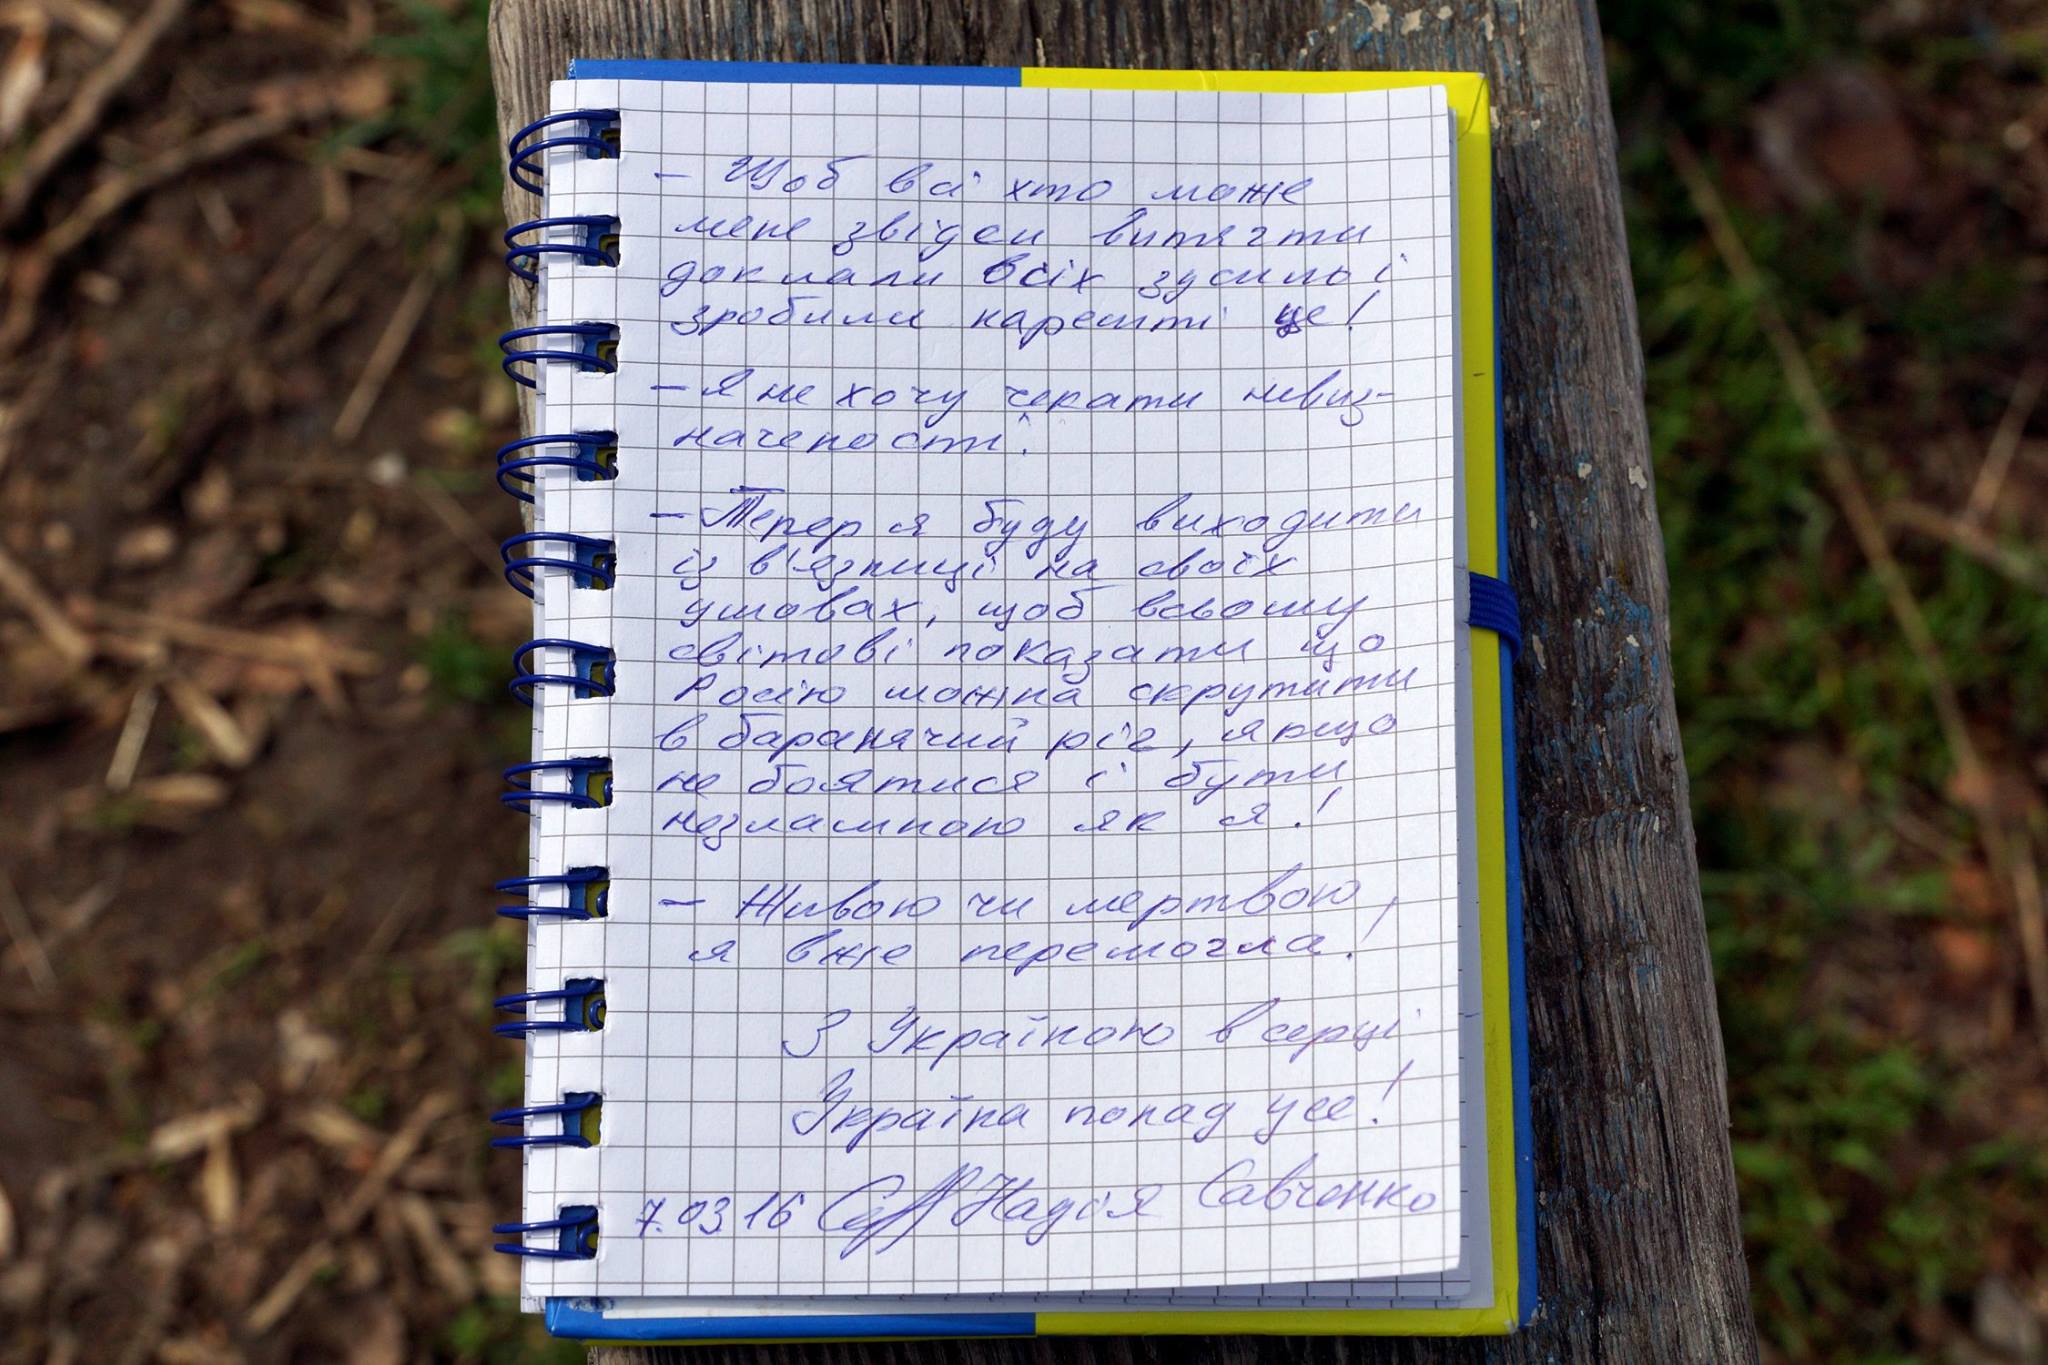 – Щоб всі хто може
мене звідси витягти
доклали всіх зусиль і
зробили нарешті це!
– Я не хочу чекати невиз-
наченості!
– Тепер я буду виходити
із в'язниці на своїх
умовах, щоб всьому
світові показати що
Росію можна скрутити
в баранячий ріг, якщо
не боятися і бути
незламною як я!
– Живою чи мертвою,
я вже перемогла!
З Україною в серці
Україна понад усе!
7.03 16 Надія Савченко